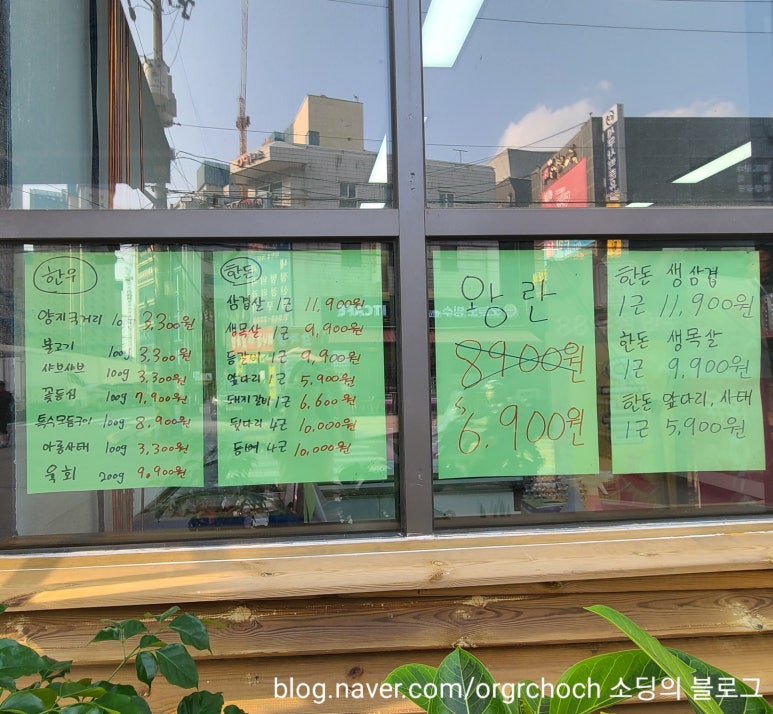 한우
양지국거리 100g 3,300원
불고기 100g 3,300원
샤브샤브 100g 3,300원
꽃등심 100g 7,900원
특수모듬구이 100g 8,900원
아롱사태 100g 3,300원
육회 200g 9,900원
한돈
삼겹살 1근 11,900원
생목살 1근 9,900원
등갈비 1근 9,900원
앞다리 1근 5,900원
돼지갈비 1근 6,600원
뒷다리 4근 10,000원
등뼈 4근 10,000원
왕란
8900원
6,900원
한돈 생삼겹
1근 11,900원
한돈 생목살
1근 9,900원
한돈 앞다리, 사태
1근 5,900원
blog.naver.com/orgrchoch 소딩의 블로그